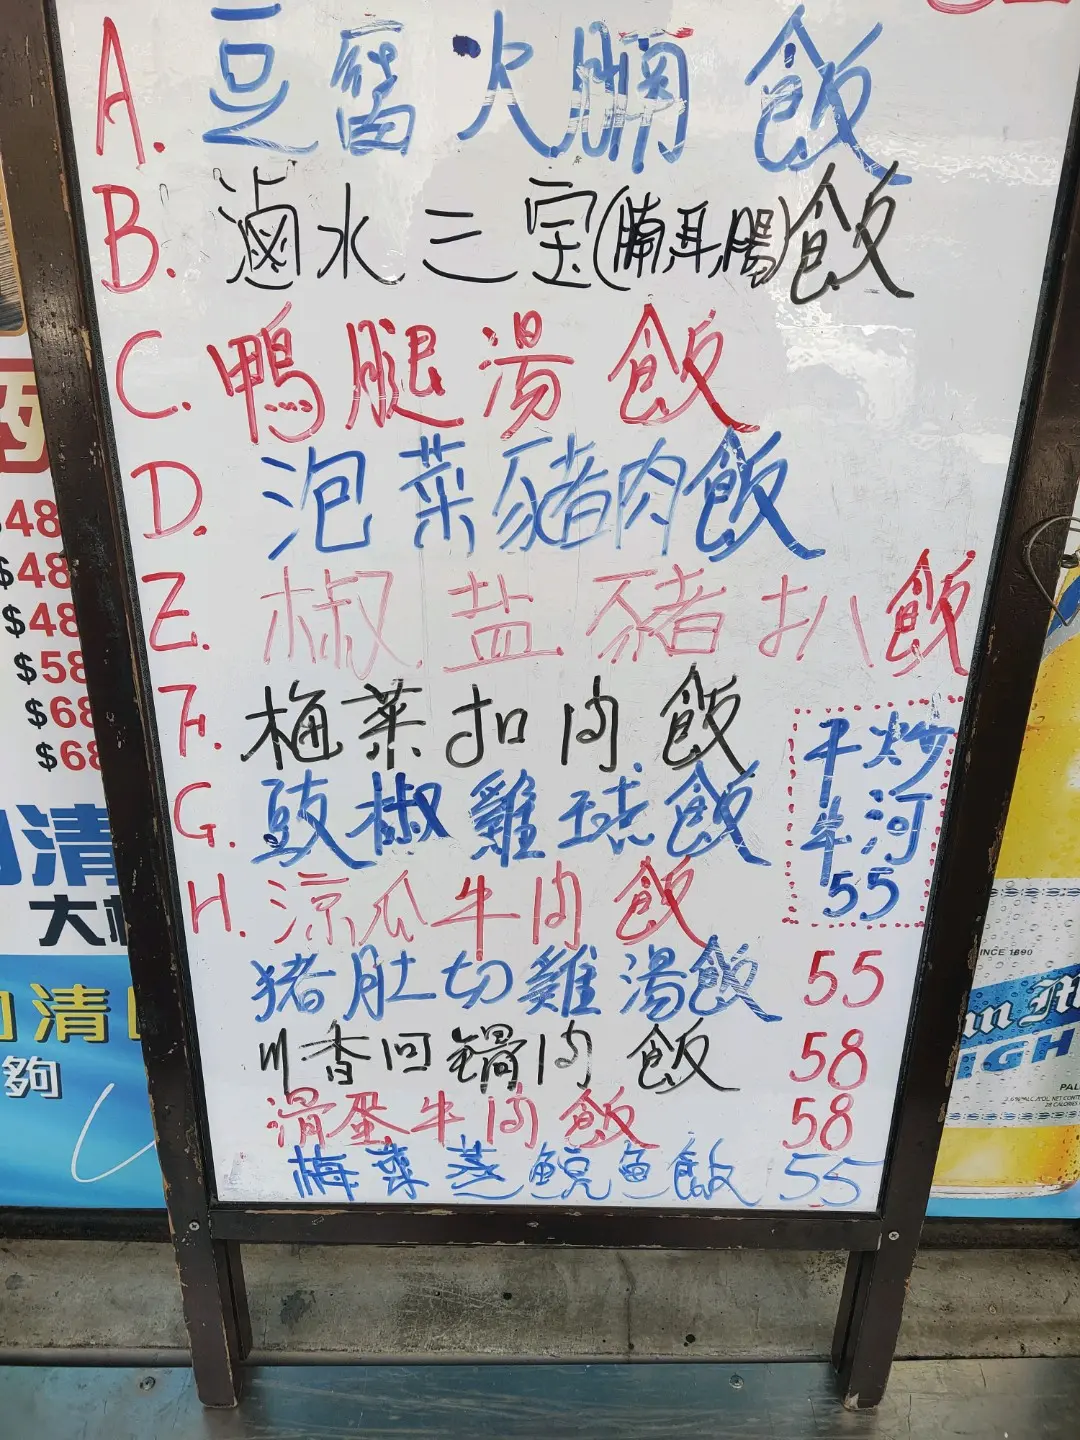 A. 豆腐火腩飯
B. 滷水三宝(腩,耳,腸)飯
C. 鴨腿湯飯
D. 泡菜豬肉飯
E. 椒盐豬扒飯
F. 梅菜扣肉飯
G. 豉椒雞球飯
H. 涼瓜牛肉飯
干炒
牛河
55
猪肚切雞湯飯 55
川香回鍋肉飯 58
滑蛋牛肉飯 58
梅菜蒸鯇魚飯 55
48
$48
$48
$58
$68
$68
清
大
清
夠
SINCE 1890
IGH